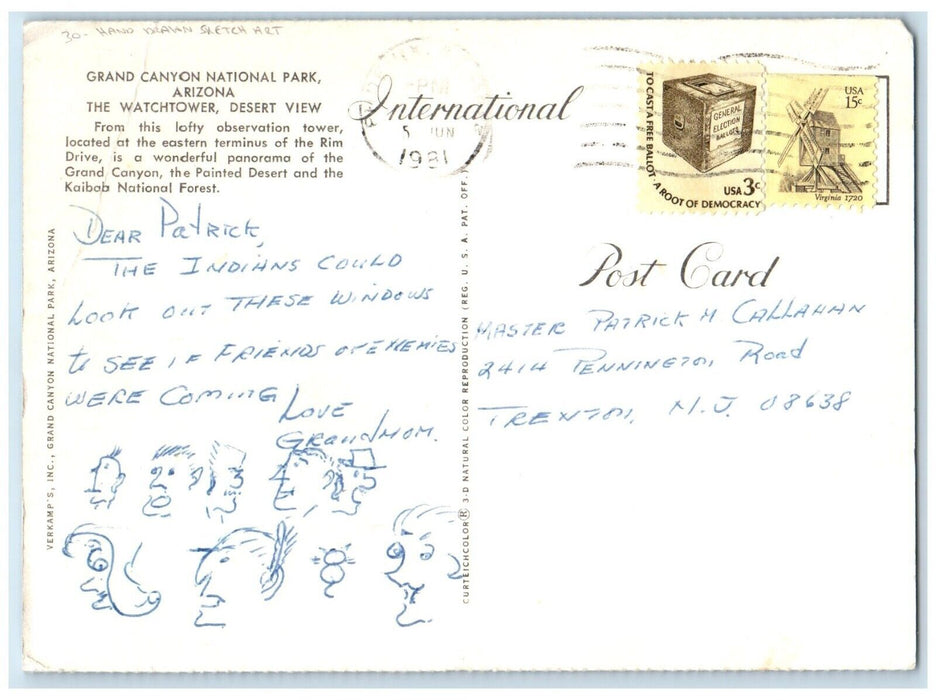 30- HAND DRAWN SKETCH ART
GRAND CANYON NATIONAL PARK,
ARIZONA
THE WATCHTOWER, DESERT VIEW
From this lofty observation tower,
located at the eastern terminus of the Rim
Drive, is a wonderful panorama of the
Grand Canyon, the Painted Desert and the
Kaibab National Forest.
DEAR PATRICK,
THE INDIANS COULD
LOOK OUT THESE WINDOWS
to SEE IF FRIENDS OR ENEMIES
WERE COMING
LOVE
GRANDMOM.
VERKAMP'S, INC., GRAND CANYON NATIONAL PARK, ARIZONA
CURTEICHCOLOR® 3-D NATURAL COLOR REPRODUCTION (REG. U. S. A. PAT. OFF.)
International
PM
5 JUN
1981
TO CAST A FREE BALLOT · A ROOT OF DEMOCRACY
GENERAL
ELECTION
BALLOTS
USA 3c
USA
15c
Virginia 1720
Post Card
MASTER PATRICK M CALLAHAN
2414 PENNINGTON Road
TRENTON, N.J. 08638